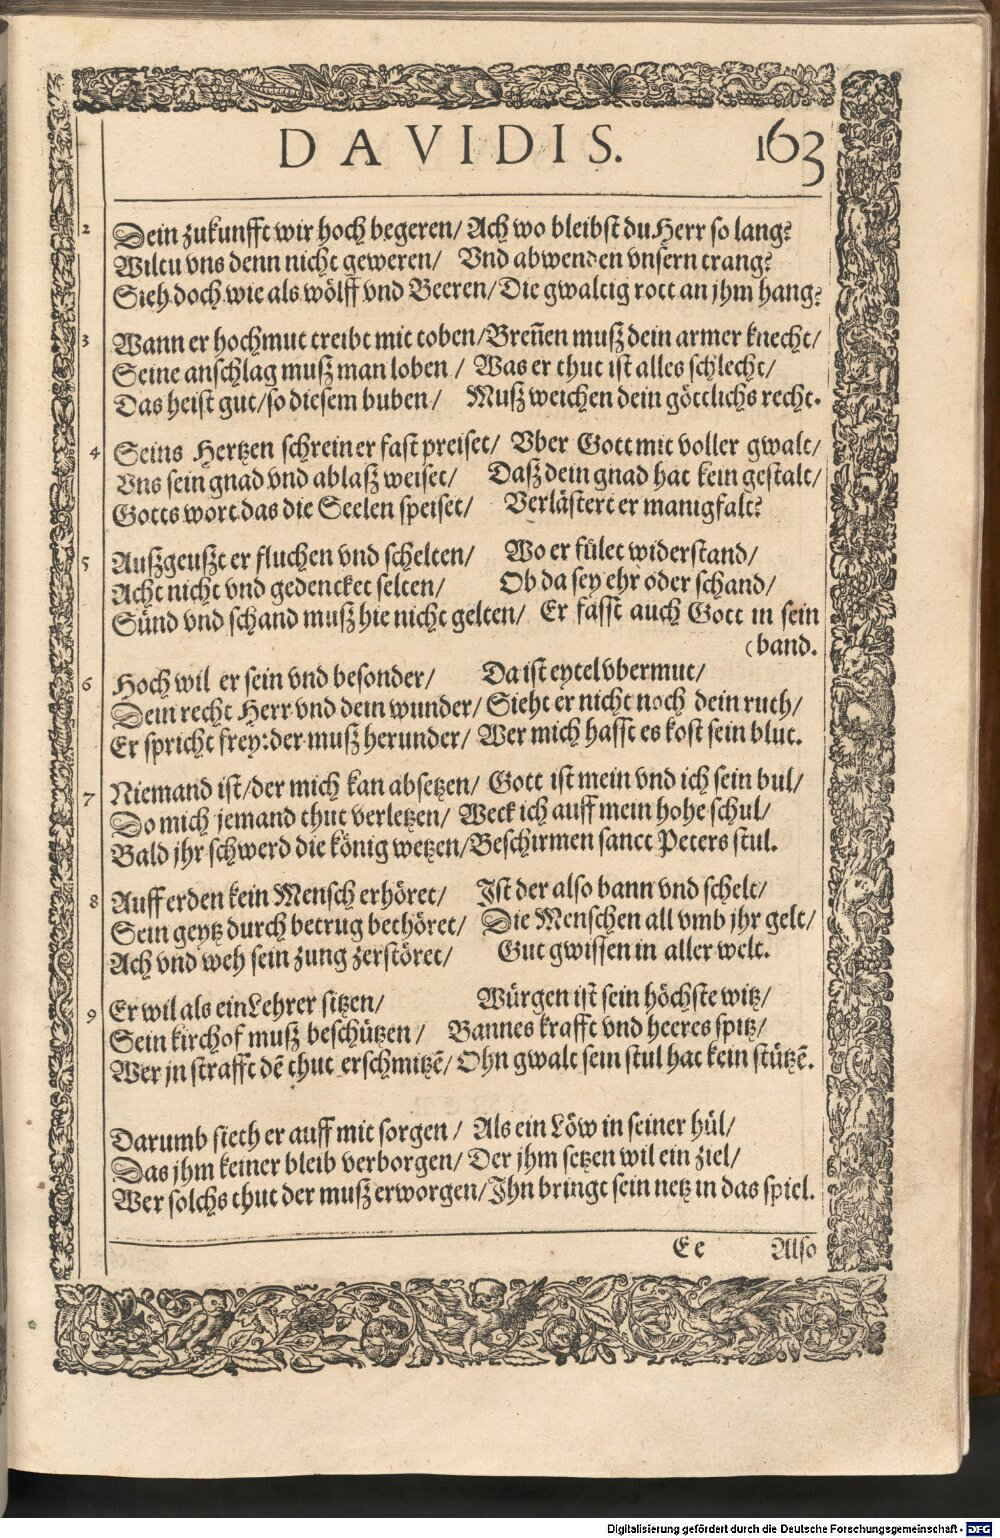 DAVIDIS. 163
2 Dein zukunfft wir hoch begeren/ Ach wo bleibst du Herr so lang?
Wiltu vns denn nicht geweren/ Vnd abwenden vnsern trang?
Sieh doch wie als wölff vnd Beeren/ Die gwaltig rott an jhm hang?
3 Wann er hochmut treibt mit toben/ Breñen musz dein armer knecht/
Seine anschlag musz man loben/ Was er thut ist alles schlecht/
Das heist gut/ so diesem buben/ Musz weichen dein göttlichs recht.
4 Seins Hertzen schrein er fast preiset/ Vber Gott mit voller gwalt/
Vns sein gnad vnd ablasz weiset/ Dasz dein gnad hat kein gestalt/
Gotts wort das die Seelen speiset/ Verlästert er manigfalt?
5 Auszgeuszt er fluchen vnd schelten/ Wo er fület widerstand/
Acht nicht vnd gedencket selten/ Ob da sey ehr oder schand/
Sünd vnd schand musz hie nicht gelten/ Er fasst auch Gott in sein
(band.
6 Hoch wil er sein vnd besonder/ Da ist eytel vbermut/
Dein recht Herr vnd dein wunder/ Sieht er nicht noch dein ruth/
Er spricht frey: der musz herunder/ Wer mich hasst es kost sein blut.
7 Niemand ist/ der mich kan absetzen/ Gott ist mein vnd ich sein bul/
Do mich jemand thut verletzen/ Weck ich auff mein hohe schul/
Bald jhr schwerd die könig wetzen/ Beschirmen sanct Peters stul.
8 Auff erden kein Mensch erhöret/ Ist der also bann vnd schelt/
Sein geytz durch betrug bethöret/ Die Menschen all vmb jhr gelt/
Ach vnd weh sein zung zerstöret/ Gut gwissen in aller welt.
9 Er wil als ein Lehrer sitzen/ Würgen ist sein höchste witz/
Sein kirchof musz beschützen/ Bannes krafft vnd heeres spitz/
Wer jn strafft dē thut erschmitzē/ Ohn gwalt sein stul hat kein stützē.
Darumb sieth er auff mit sorgen/ Als ein Löw in seiner hül/
Das jhm keiner bleib verborgen/ Der jhm setzen wil ein ziel/
Wer solchs thut der musz erworgen/ Ihn bringt sein netz in das spiel.
Ee Also
Digitalisierung gefördert durch die Deutsche Forschungsgemeinschaft - DFG